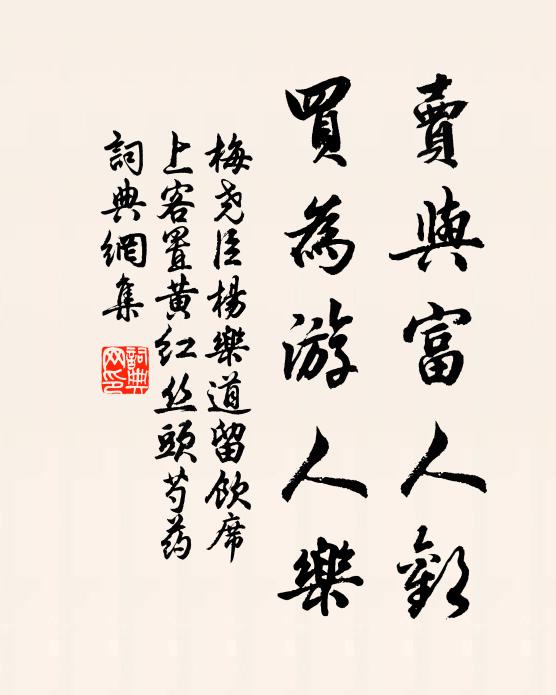 賣與富人歡
買為游人樂
梅尧臣楊樂道留飲席
上客置黄红丝頭芍药
詞典網集
詞典网印